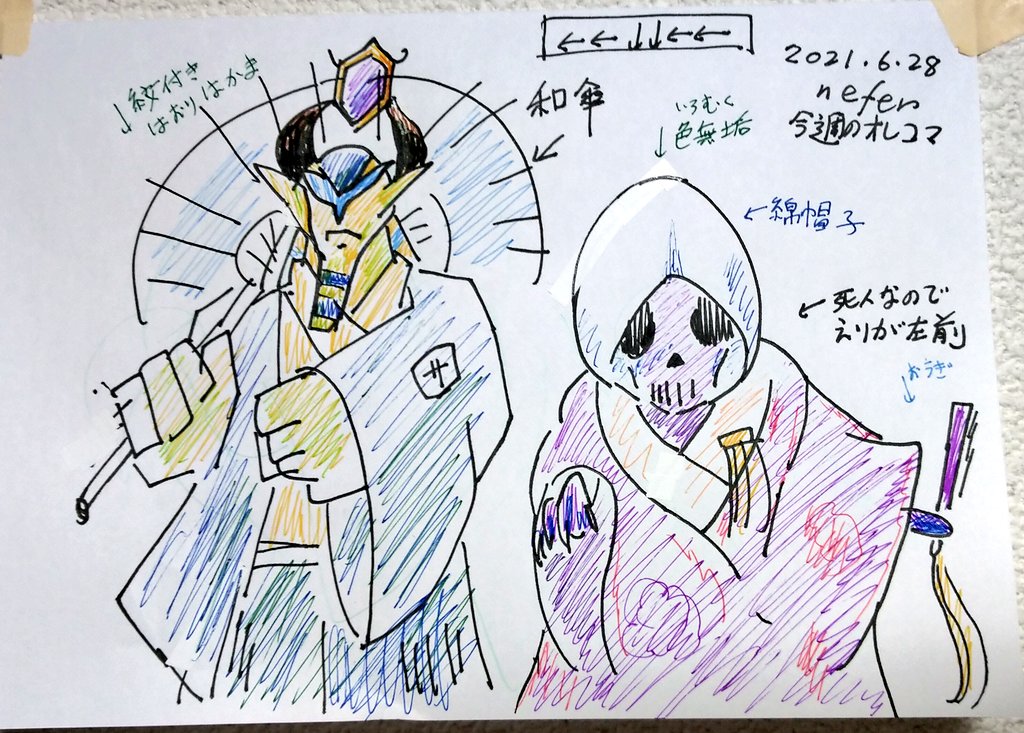 ←←↓↓←←
2021.6.28
nefer
今週のオレコマ
↓紋付き
はおりはかま
和傘
いろむく
色無垢
←綿帽子
←死人なので
えりが左前
おうぎ
サ